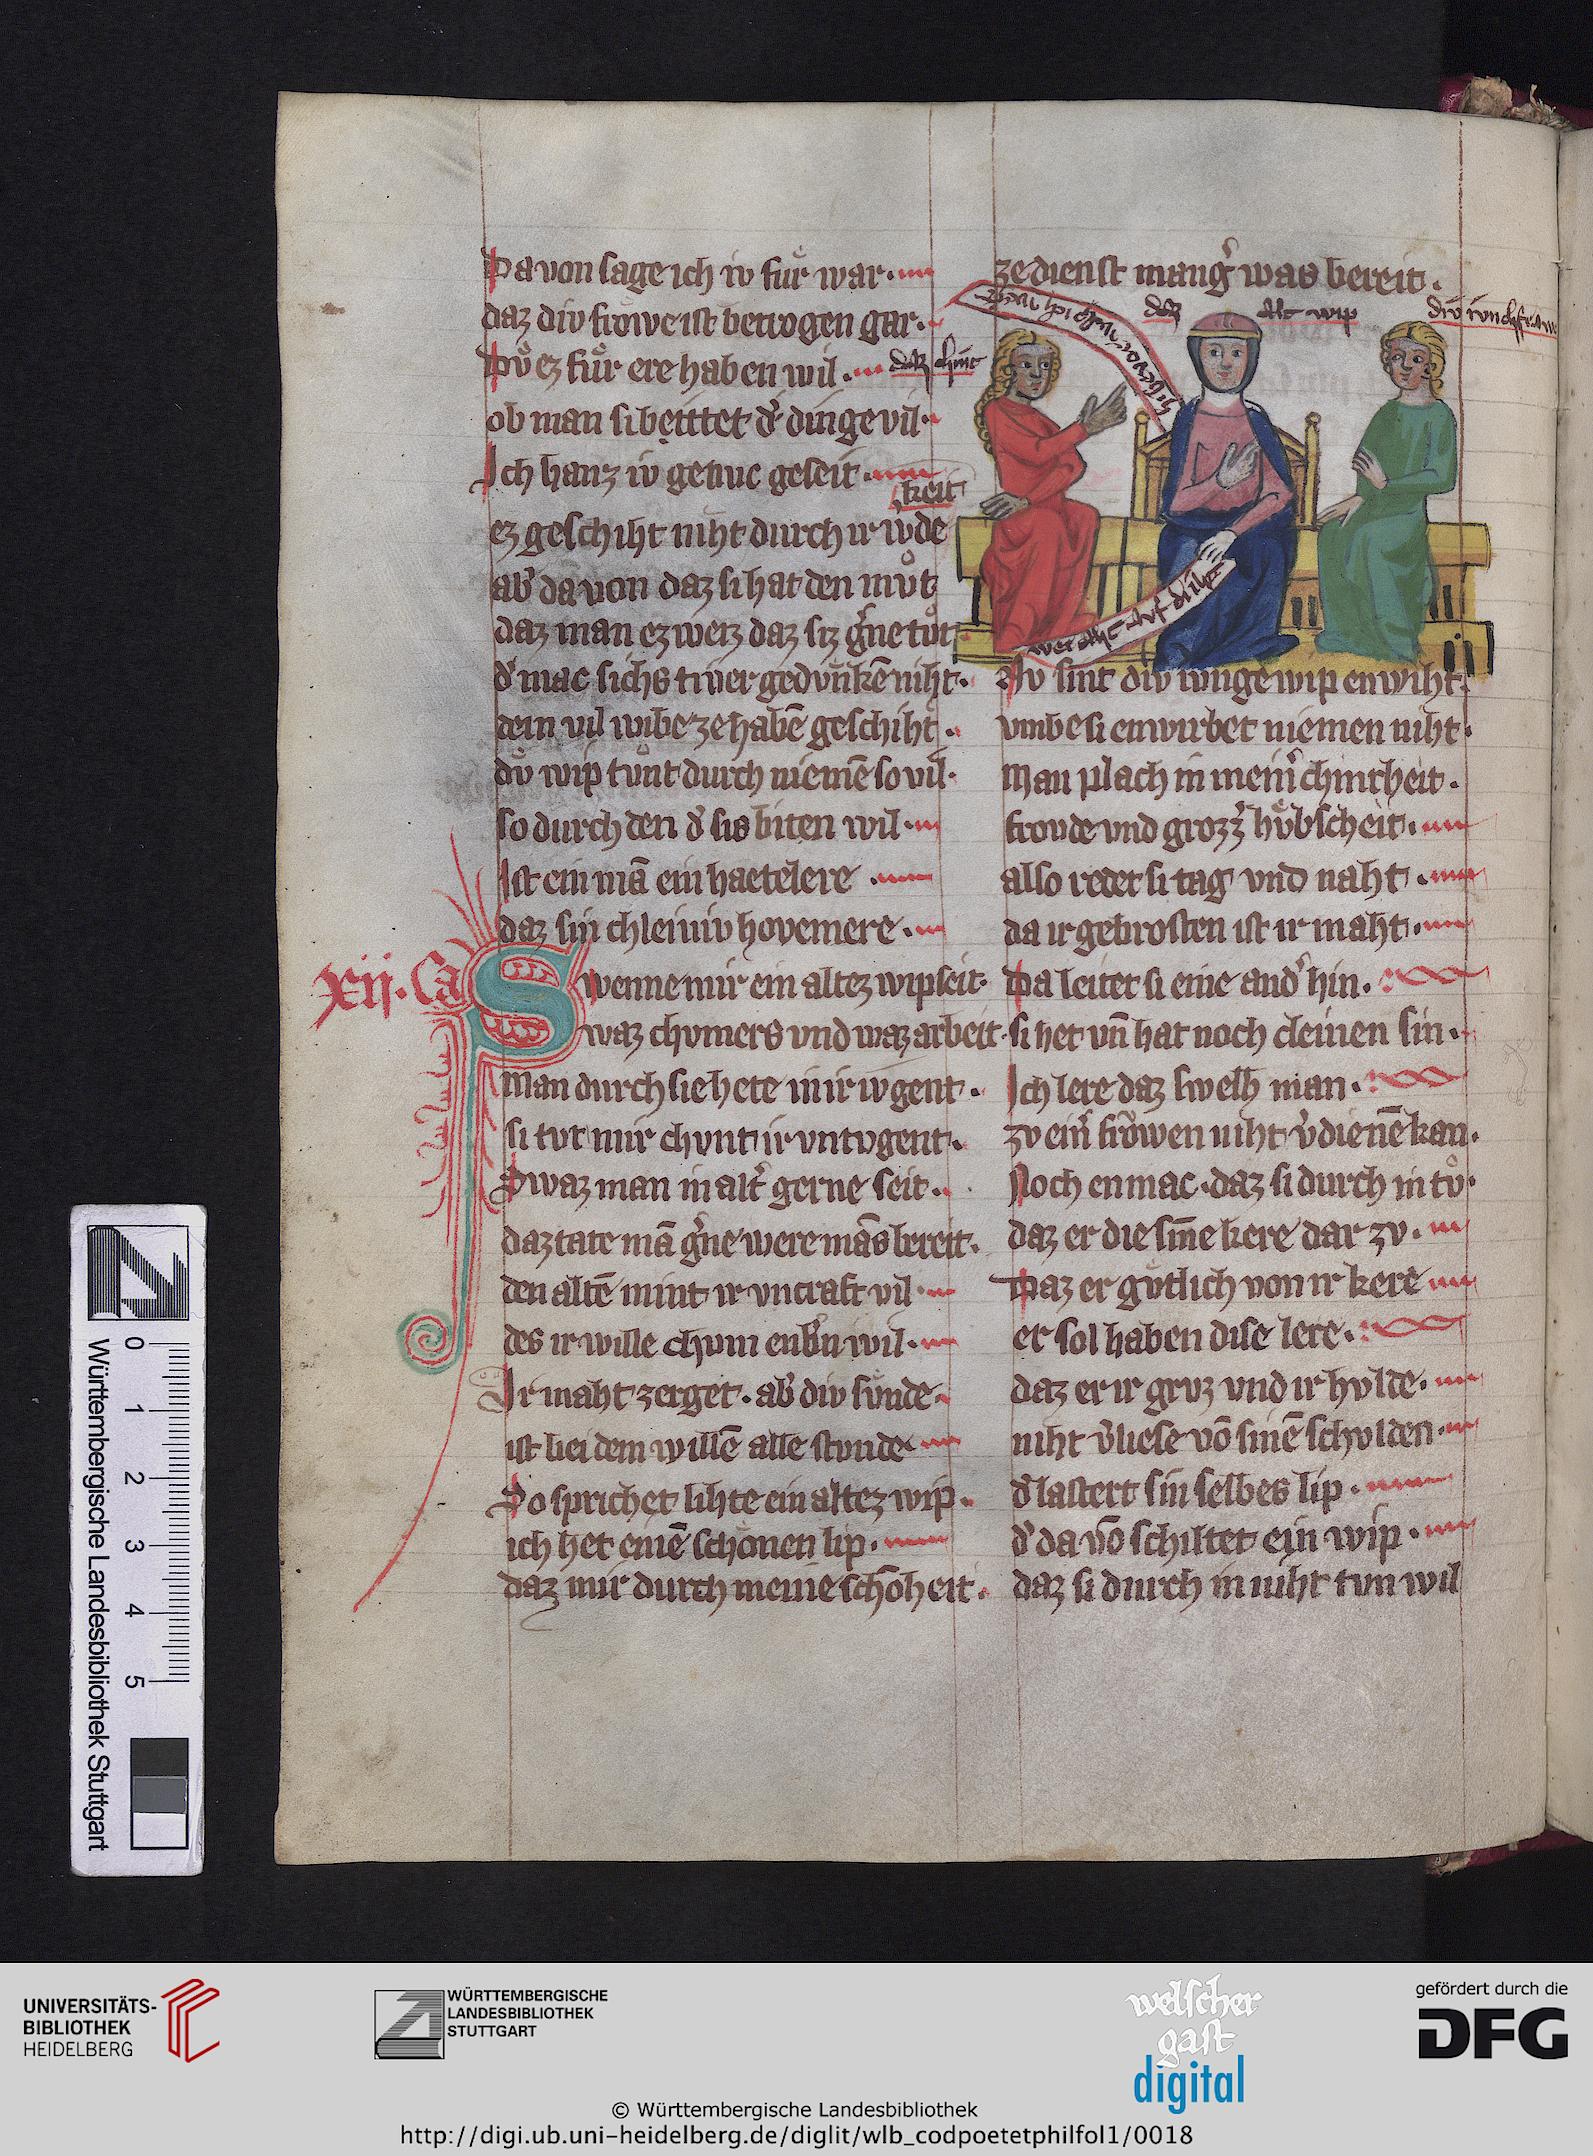 Da von sage ich iv fuͤr war.
daz div frowe ist betrogen gar.
Dv̊ ez fuͤr ere haben wil.
daz chint
ob man si beittet d᾽ dinge vil.
Ich hanz iv genuc geseit.
keit
ez geschiht niht durch ir wͦde
ab᾽ da von daz si hat den muͦt
daz man ez weiz daz siz g᾽ne tuͦt
d᾽ mac sichs tiuer gedunkē niht.
dem vil wibe ze habē geschiht.
dv̊ wip tunt durch niemē so vil.
so durch den d᾽ sis biten wil.
Ist ein mā ein haetelere.
daz sin chleiniv hovemere.
xij. Ca
Swenne mir ein altez wip seit.
waz chvmers vnd waz arbeit.
Man durch sie hete in ir ivgent.
si tvt mir chvnt ir vntvgent.
Swaz man in alt᾽ gerne seit.
daz tate mā g᾽ne were māſ bereit.
den altē nimt ir vncraft vil.
des ir wille chvm enb᾽n wil.
Ir maht zerget. ab᾽ div sv̊nde
ist bei dem willē alle stvnde
So sprichet lihte ein altez wip.
ich het einē schoͤnen lip.
daz mir durch meine schōheit.
ze dienst mang᾽ was bereit.
daz
alt wip
div ivnchfrawe
wer aht uf dihz
Nv sint div ivnge wip enwiht.
vmbe si enwirbet niemen niht.
Man plach in mein᾽ chintheit.
frovde vnd grozz᾽ hv̊bscheit.
also redet si tag vnd naht.
da ir gebrosten ist ir maht.
Da leitet si eine and᾽ hin.
si het vn̄ hat noch cleinen sin.
Ich lere daz swelh man.
zv ein᾽ frowen niht v᾽dienē kan.
Noch enmac. daz si durch in tv̊.
daz er die sīne kere dar zv.
Daz er guͤtlich von ir kere
er sol haben dise lere.
daz er ir grvz vnd ir hvlde.
niht v᾽liese vō sinē schvlden.
d᾽ lastert sin selbes lip.
d᾽ da vō schiltet ein wip.
daz si durch in niht tvn wil
Württembergische Landesbibliothek Stuttgart
0 1 2 3 4 5
UNIVERSITÄTS-
BIBLIOTHEK
HEIDELBERG
WÜRTTEMBERGISCHE
LANDESBIBLIOTHEK
STUTTGART
welscher
gast
digital
gefördert durch die
DFG
© Württembergische Landesbibliothek
http://digi.ub.uni-heidelberg.de/diglit/wlb_codpoetetphilfol1/0018